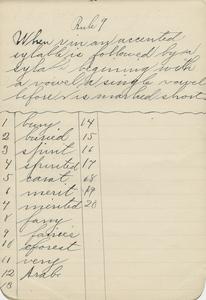 Rule 9
When r in an accented
sylable is followed by a
sylab begining with
a vowel a single vowel
before r is marked short
1 bury 14
2 buried 15
3 spirit 16
4 spirited 17
5 carat 18
6 merit 19
7 merited 20
8
9
10
11 very
12 Arab
13